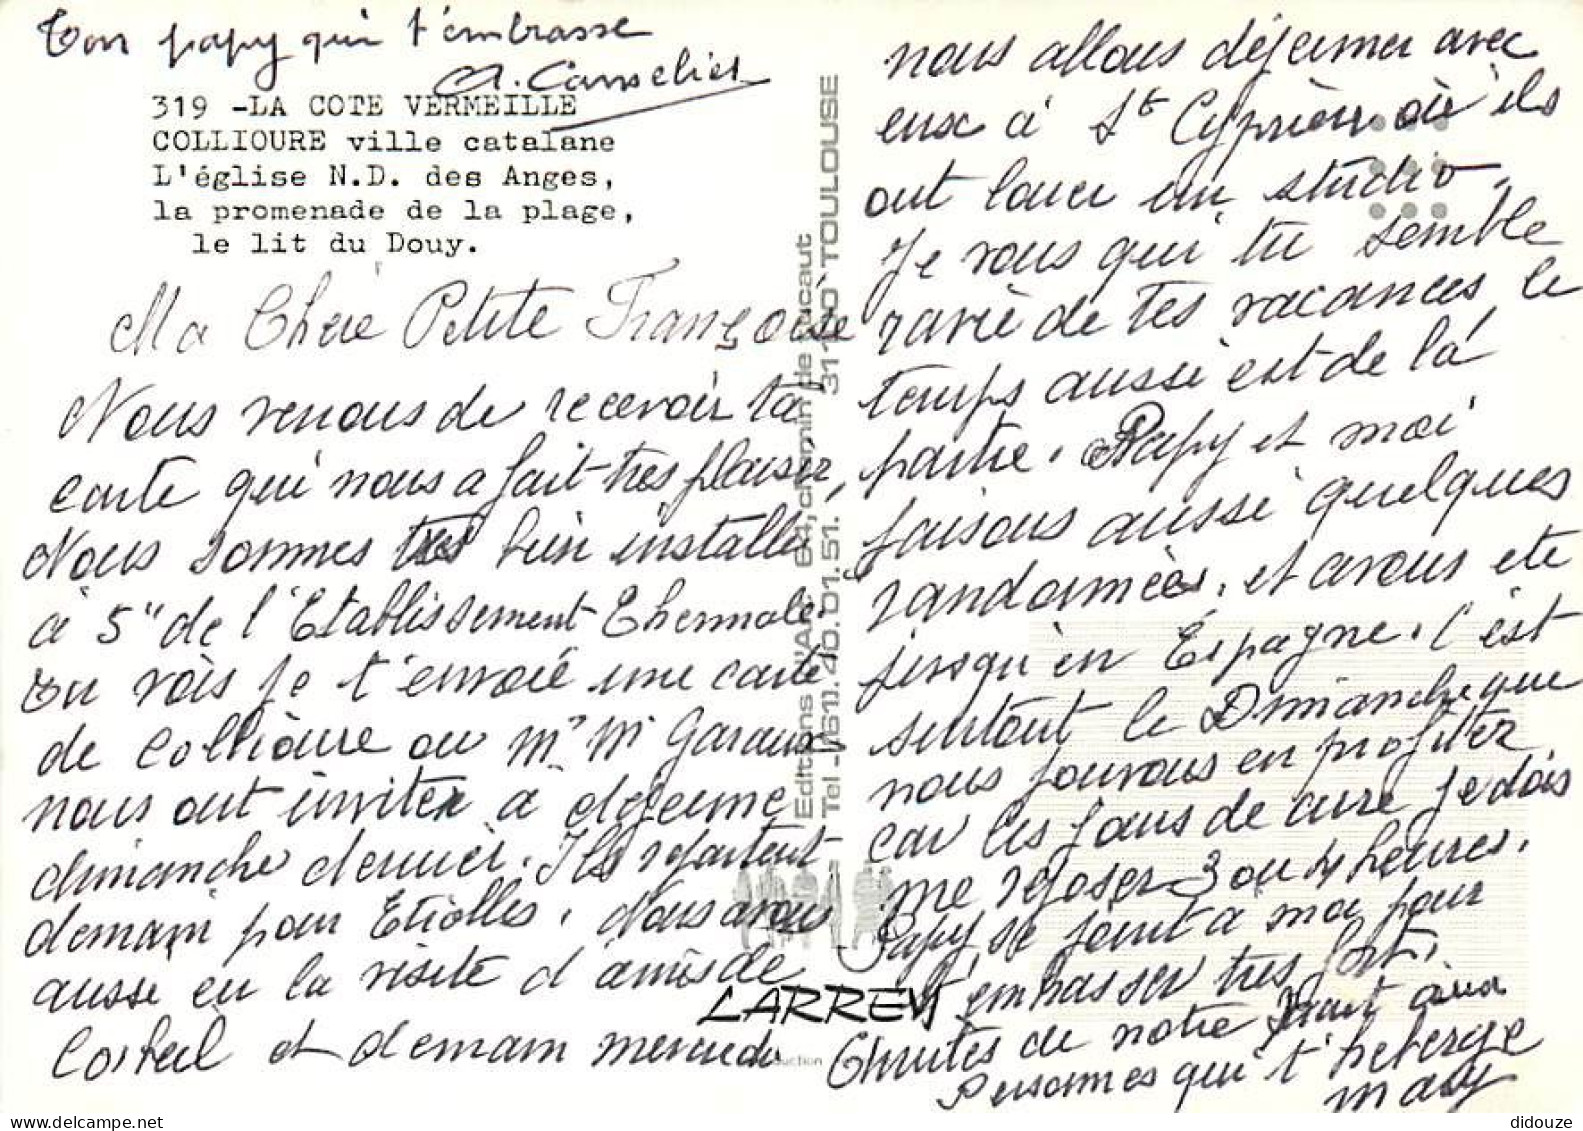 Ton papy qui t'embrasse
A. Canselier
319 -LA COTE VERMEILLE
COLLIOURE ville catalane
L'église N.D. des Anges,
la promenade de la plage,
le lit du Douy.
Ma Chère Petite Françoise
Nous venons de recevoir ta
carte qui nous a fait très plaisir,
Nous sommes très bien installés
à 5" de l'Etablissement Thermale
Tu vois je t'envoie une carte
de Collioure ou Mr Mr Garaux
nous ont inviter à déjeuner
dimanche dernier. Ils repartent
demain pour Etiolles. Nous avons
aussi eu la visite d'amis de
Corbeil et demain mercredi
nous allons déjeuner avec
eux à St Cyprien où ils
ont louer un studio.
Je vois que tu semble
ravie de tes vacances, le
temps aussi est de la
partie. Papy et moi
faisons aussi quelques
randonnées, et avons été
jusqu'en Espagne. C'est
surtout le Dimanche que
nous pouvons en profiter
car les jours de cure je dois
me reposer 3 ou 4 heures.
Papy se joint à moi pour
t'embrasser très fort,
de notre part aux
Personnes qui t'héberge
Mamy
Editions d'Art 64, chemin de
Tel (61). 40.01.51. TOULOUSE
LARREY
didouze